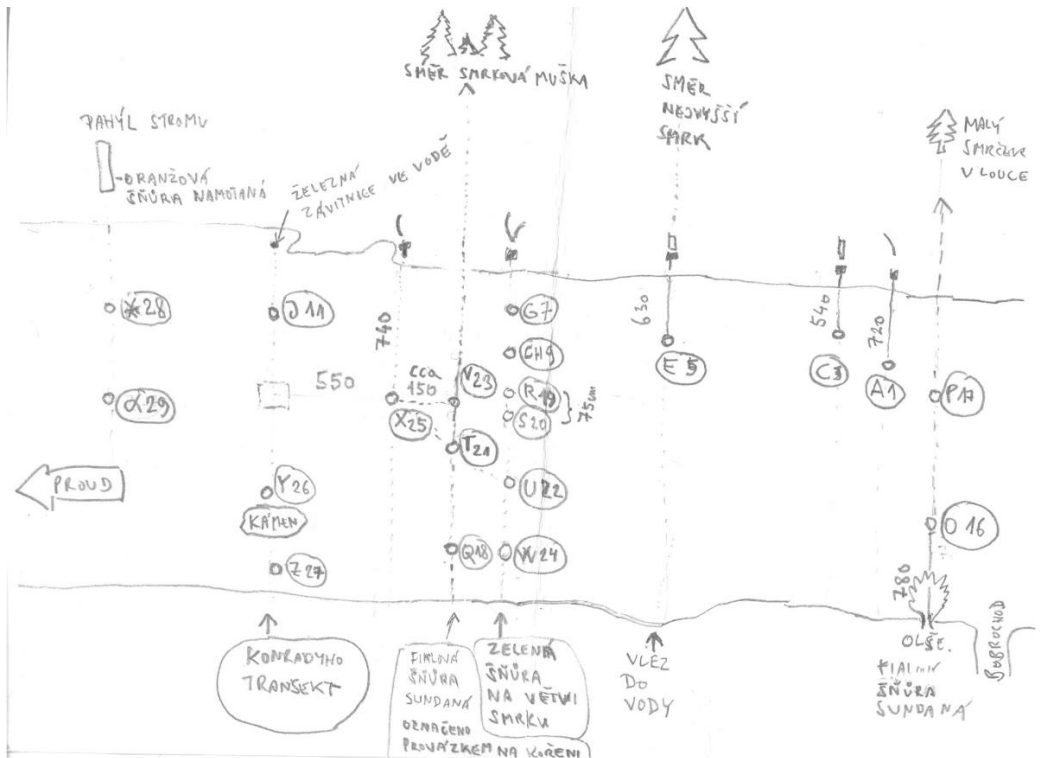 SMĚR SMRKOVÁ MUŠKA
SMĚR
NEJVYŠŠÍ
SMRK
MALÝ
SMRČEK
V LOUCE
PAHÝL STROMU
ORANŽOVÁ
ŠŇŮRA NAMOTANÁ
ŽELEZNÁ
ZÁVITNICE VE VODĚ
28
J 11
G7
CH9
630
E 5
540
C3
720
A1
740
550
cca
150
V23
X25
R19
S20
75cm
T21
P17
α29
PROUD
Y26
KÁMEN
U22
Z27
Q18
W24
O 16
780
OLŠE
BOBROCHOD
KONRADYHO
TRANSEKT
FIALOVÁ
ŠŇŮRA
SUNDANÁ
OZNAČENO
PROVÁZKEM NA KOŘENI
ZELENÁ
ŠŇŮRA
NA VĚTVI
SMRKU
VLEZ
DO
VODY
ŠŇŮRA
SUNDANÁ